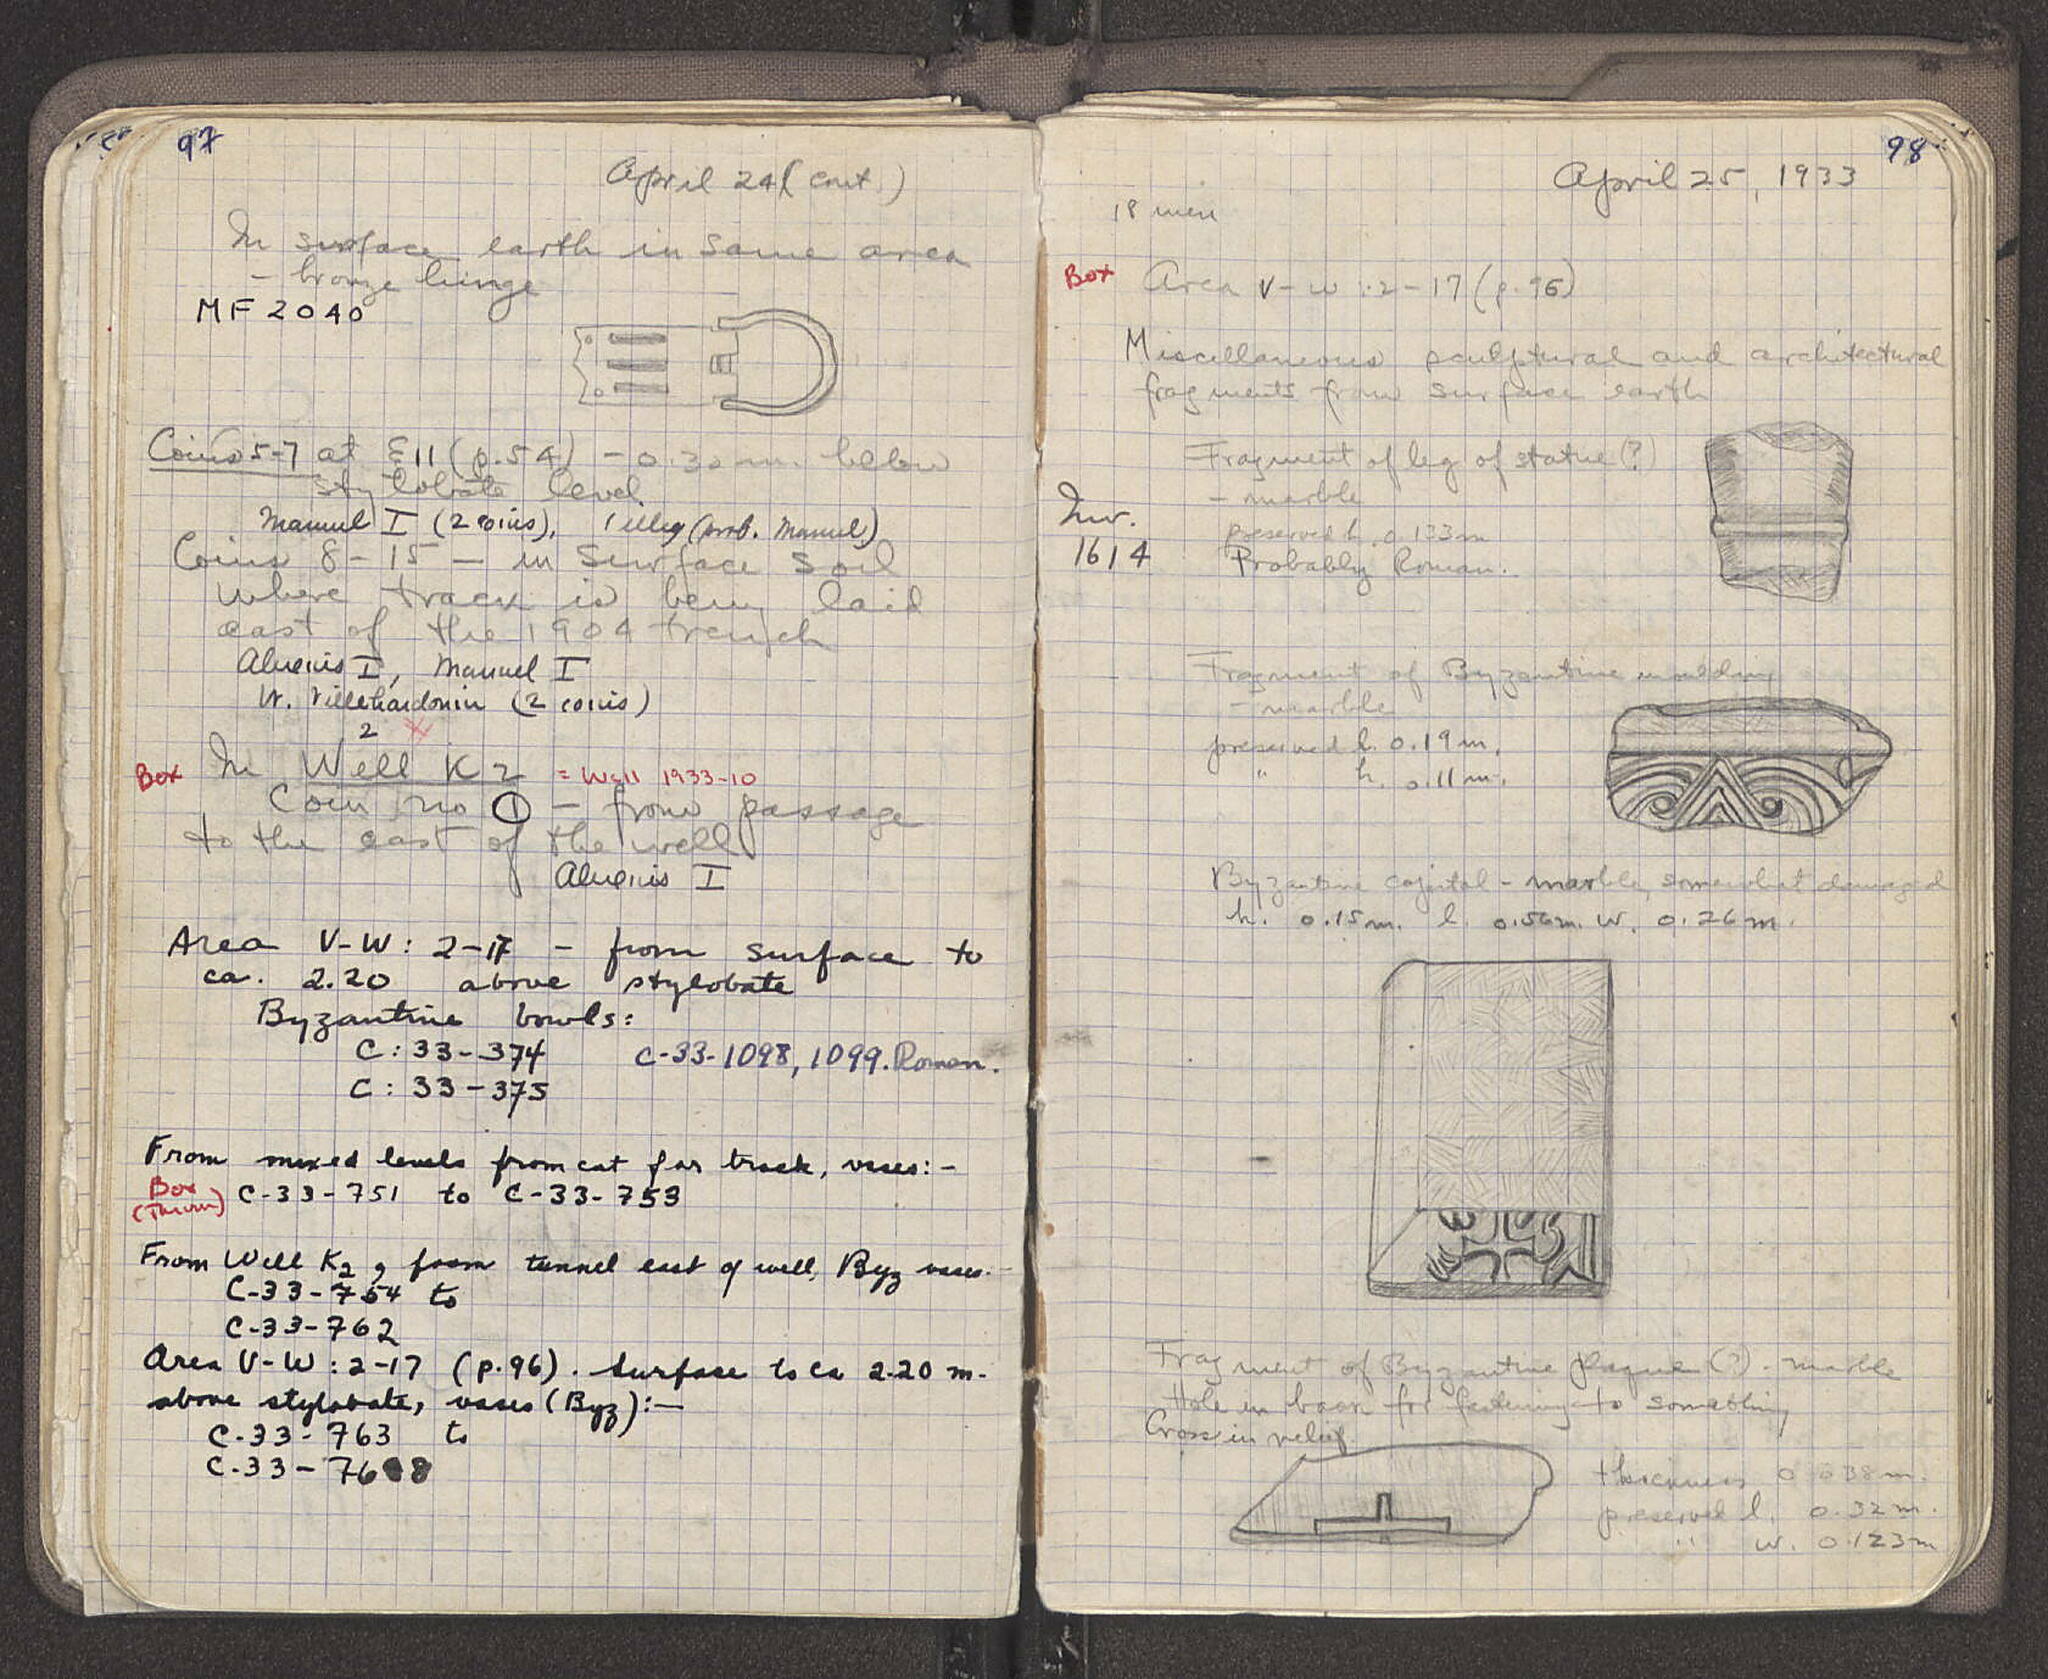 97
April 24 (cont.)
In surface earth in same area
- bronze hinge
MF 2040
Coins 5-7 at E11 (p.54) - 0.30 m. below
stylobate level
Manuel I (2 coins), 1 illeg (prob. Manuel)
Coins 8-15 — in surface soil
where track is being laid
east of the 1904 trench
Alexius I, Manuel I
W. Villehardouin (2 coins)
2
Box In Well K2 = Well 1933-10
Coin no 1 - from passage
to the east of the well
Alexius I
Area V-W: 2-17 - from surface to
ca. 2.20 above stylobate
Byzantine bowls:
C: 33-374 C-33-1098, 1099. Roman.
C: 33-375
From mixed levels from cut for track, vases:-
Box C-33-751 to C-33-753
(Thrown)
From Well K2, from tunnel east of well, Byz vases.-
C-33-754 to
C-33-762
Area V-W: 2-17 (p.96). Surface to ca 2.20 m.
above stylobate, vases (Byz):—
C-33-763 to
C-33-768
98
April 25, 1933
18 men
Box Area V-W: 2-17 (p.96)
Miscellaneous sculptural and architectural
fragments from surface earth
Fragment of leg of statue (?)
- marble
Inv. preserved h. 0.133 m
1614 Probably Roman.
Fragment of Byzantine moulding
- marble
preserved l. 0.19 m.
" h. 0.11 m.
Byzantine capital - marble, somewhat damaged
h. 0.15 m. l. 0.56 m. w. 0.26 m.
Fragment of Byzantine plaque (?). marble
Hole in back for fastening to something
Cross in relief
thickness 0.038 m.
preserved l. 0.32 m.
" w. 0.123 m